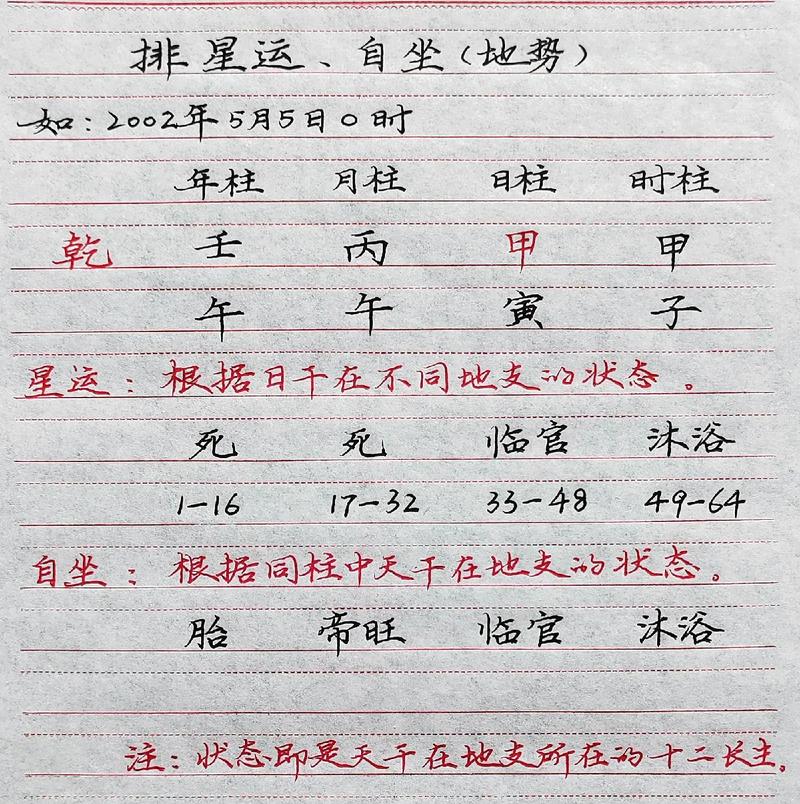 排星运、自坐(地势)
如:2002年5月5日0时
年柱 月柱 日柱 时柱
乾 壬 丙 甲 甲
午 午 寅 子
星运:根据日干在不同地支的状态。
死 死 临官 沐浴
1-16 17-32 33-48 49-64
自坐:根据同柱中天干在地支的状态。
胎 帝旺 临官 沐浴
注:状态即是天干在地支所在的十二长生。